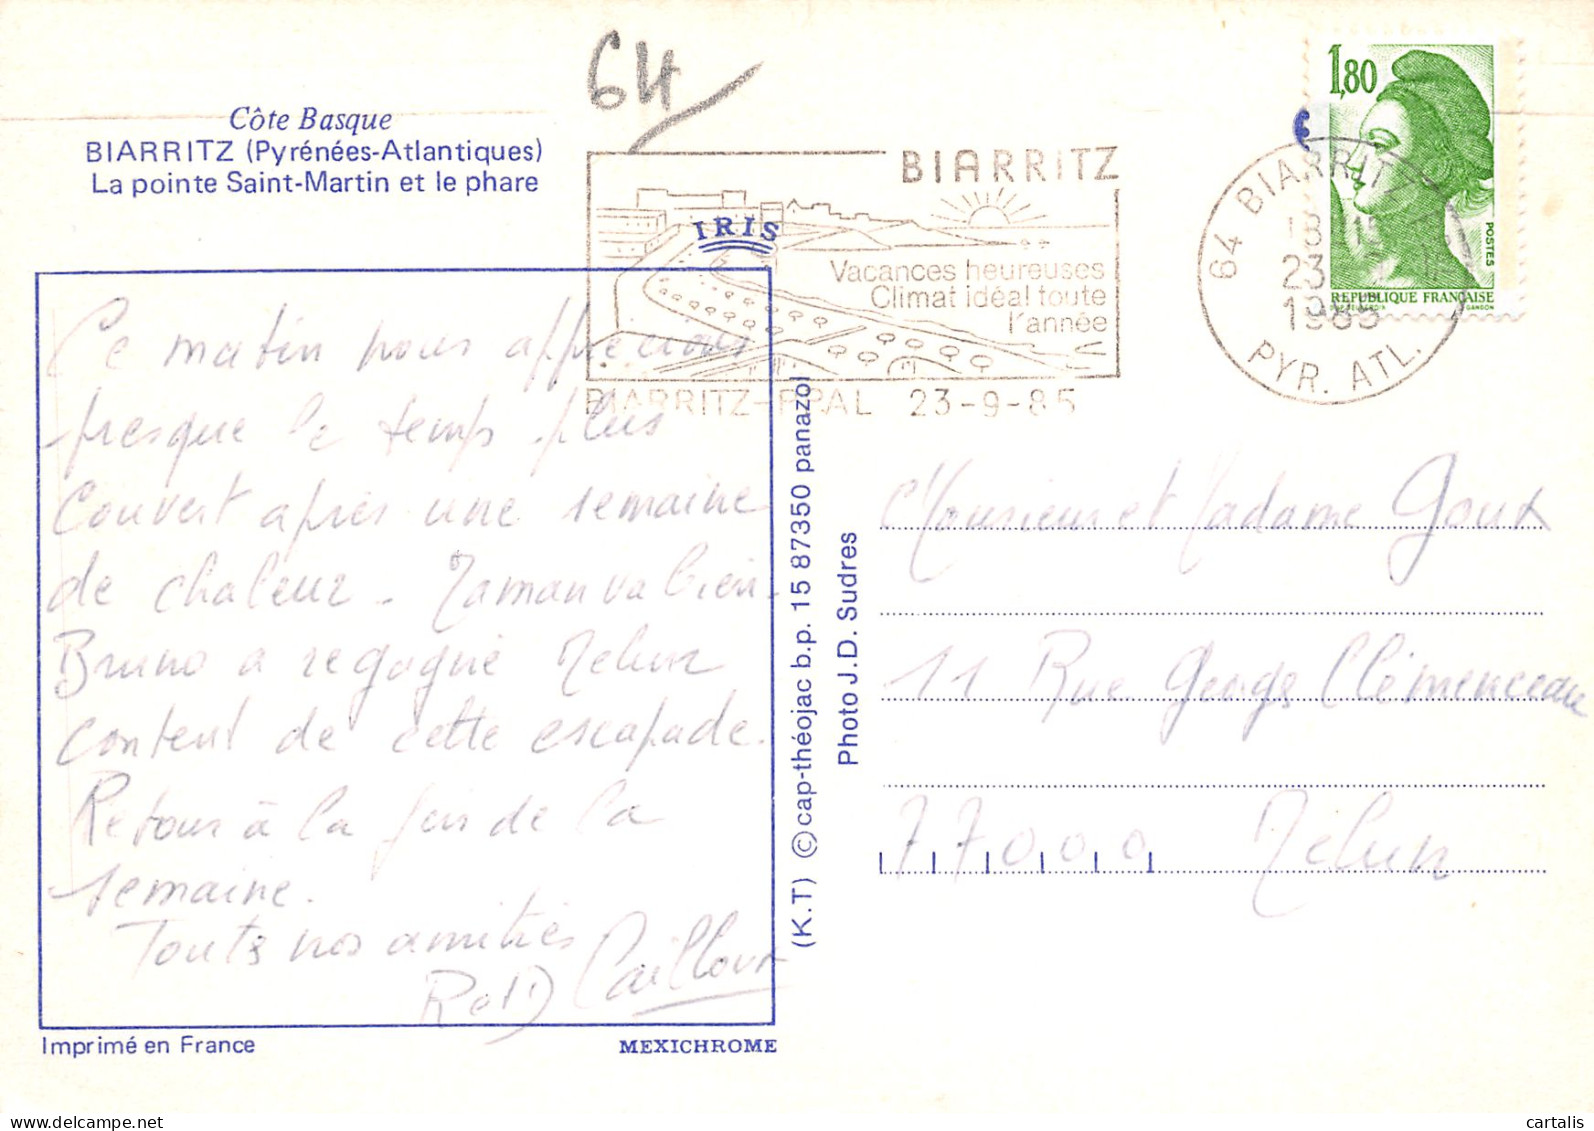 64
Côte Basque
BIARRITZ (Pyrénées-Atlantiques)
La pointe Saint-Martin et le phare
IRIS
BIARRITZ
Vacances heureuses
Climat idéal toute
l'année
BIARRITZ-PPAL 23-9-85
1,80
POSTES
REPUBLIQUE FRANÇAISE
GANDON
64 BIARRITZ
23
1985
PYR. ATL.
Ce matin nous apprécions
presque le temps plus
couvert après une semaine
de chaleur. Maman va bien.
Bruno a regagné Melun
content de cette escapade.
Retour à la fin de la
semaine.
Toutes nos amitiés
R et D Cailloux
Imprimé en France
MEXICHROME
(K.T) © cap-théojac b.p. 15 87350 panazol
Photo J.D. Sudres
Monsieur et Madame Goux
11 Rue Georges Clémenceau
77000 Melun
cartalis
Delcampe.net